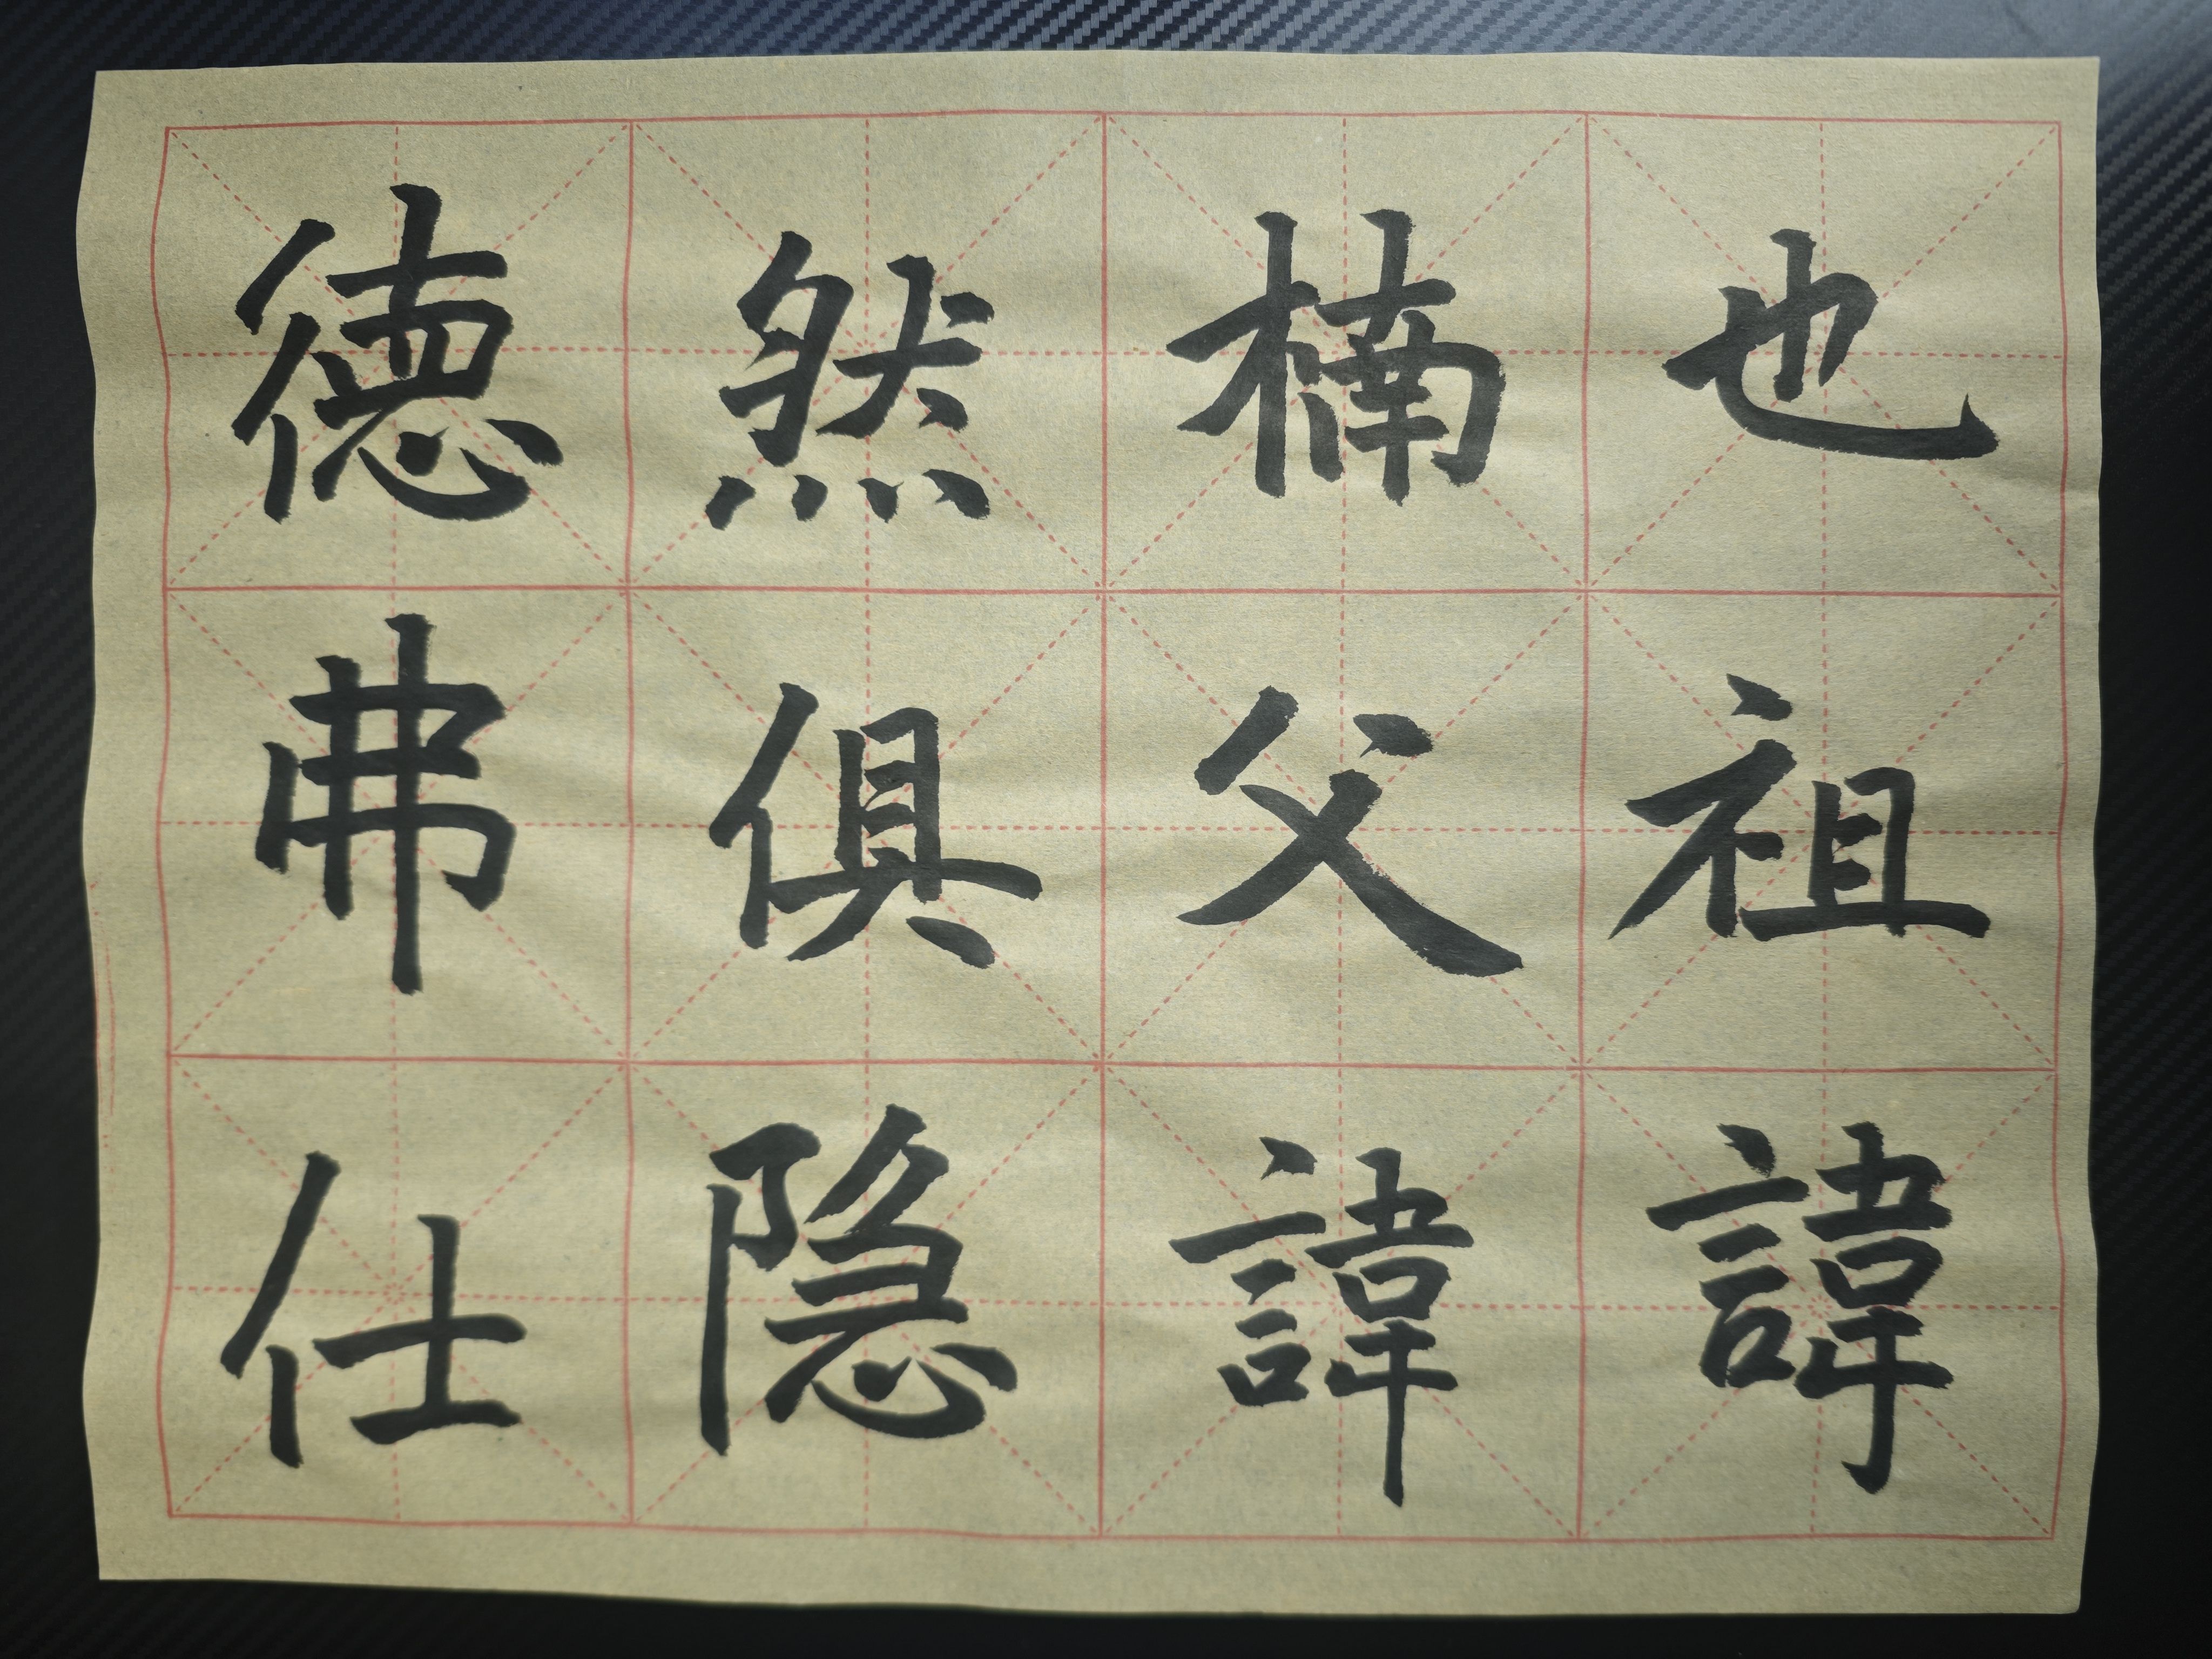 也祖諱
楠父諱
然俱隐
德弗仕